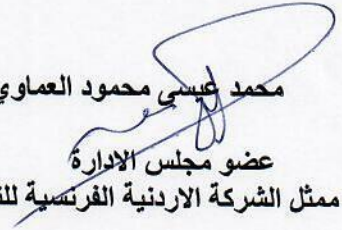 محمد عيسى محمود العماوي
عضو مجلس الادارة
ممثل الشركة الاردنية الفرنسية